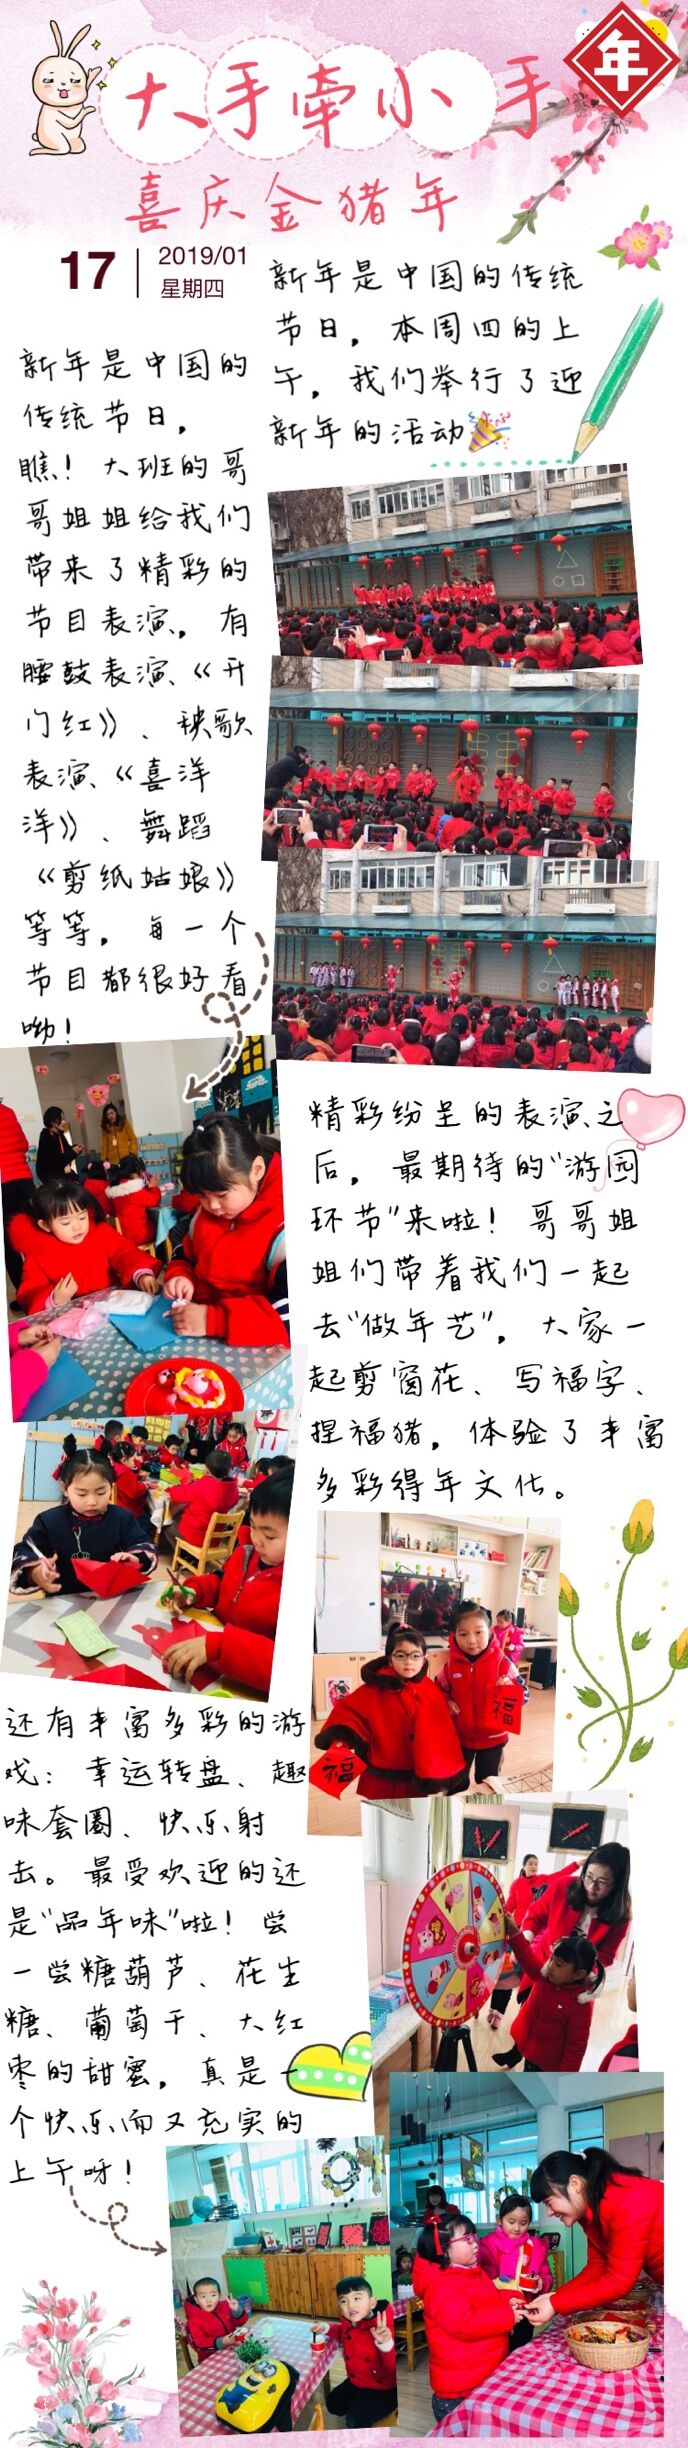 大手牵小手
年
喜庆金猪年
17
2019/01
星期四
新年是中国的传统
节日，本周四的上
午，我们举行了迎
新年的活动
新年是中国的
传统节日，
瞧！大班的哥
哥姐姐给我们
带来了精彩的
节目表演，有
腰鼓表演《开
门红》、秧歌
表演《喜洋
洋》、舞蹈
《剪纸姑娘》
等等，每一个
节目都很好看
呦！
精彩纷呈的表演之
后，最期待的“游园
环节”来啦！哥哥姐
姐们带着我们一起
去“做年艺”，大家一
起剪窗花、写福字、
捏福猪，体验了丰富
多彩得年文化。
福
福
还有丰富多彩的游
戏：幸运转盘、趣
味套圈、快乐射
击。最受欢迎的还
是“品年味”啦！尝
一尝糖葫芦、花生
糖、葡萄干、大红
枣的甜蜜，真是一
个快乐而又充实的
上午呀！